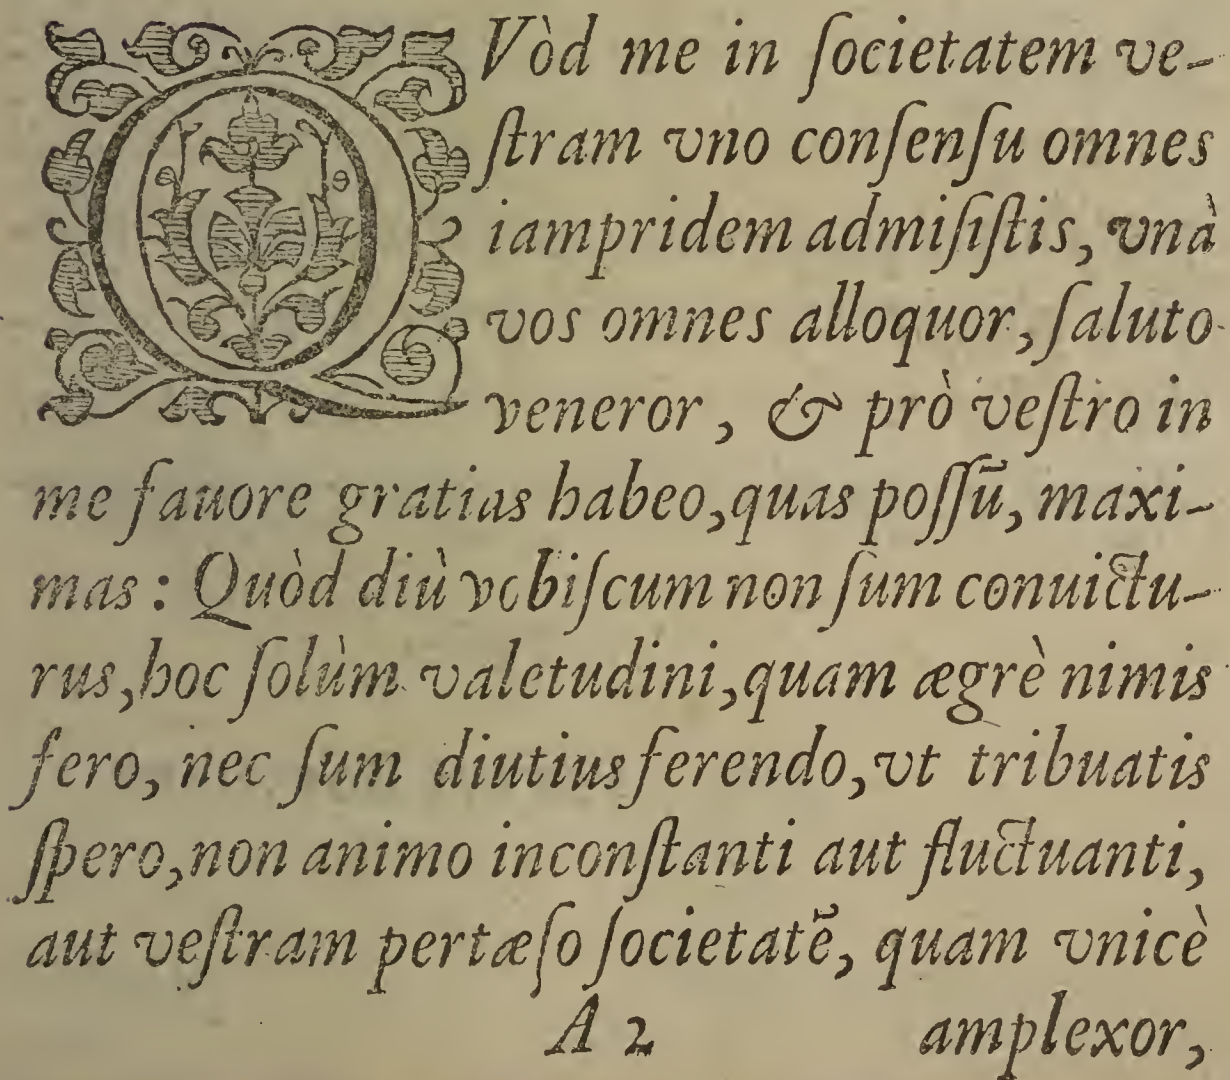 QVòd me in ſocietatem ve-
ſtram vno conſenſu omnes
iampridem admiſiſtis, vnà
vos omnes alloquor, ſaluto
veneror, & prò veſtro in
me fauore gratias habeo, quas poſſū, maxi-
mas: Quòd diù vobiſcum non ſum conuictu-
rus, hoc ſolùm valetudini, quam ægrè nimis
fero, nec ſum diutius ferendo, vt tribuatis
ſpero, non animo inconſtanti aut fluctuanti,
aut veſtram pertæſo ſocietatē, quam vnicè
A 2 amplexor,